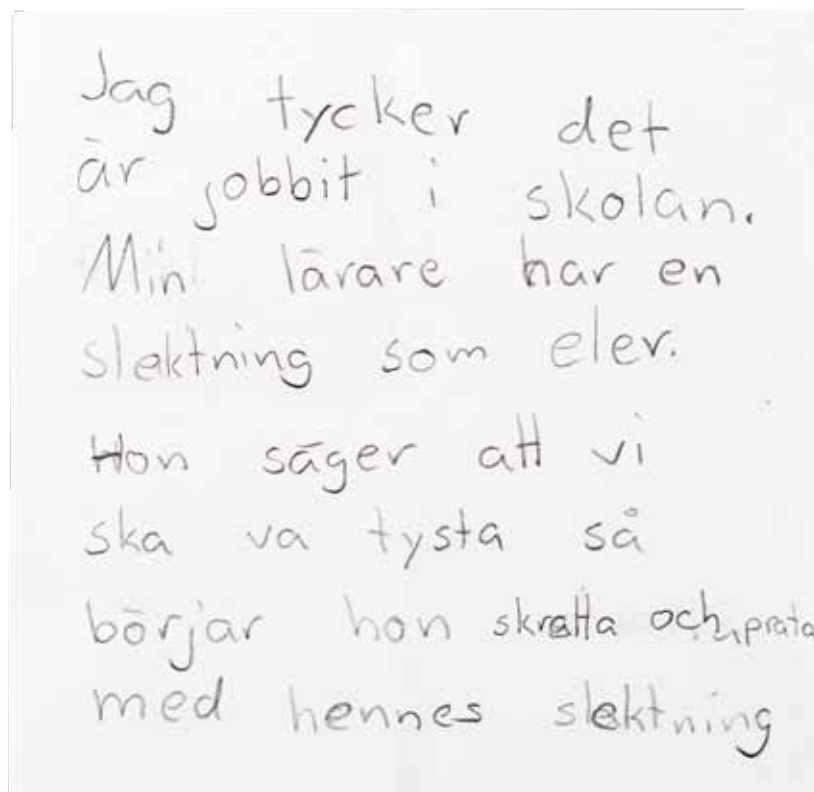 Jag tycker det
är jobbit i skolan.
Min lärare har en
slektning som elev.
Hon säger att vi
ska va tysta så
börjar hon skratta och prata
med hennes slektning